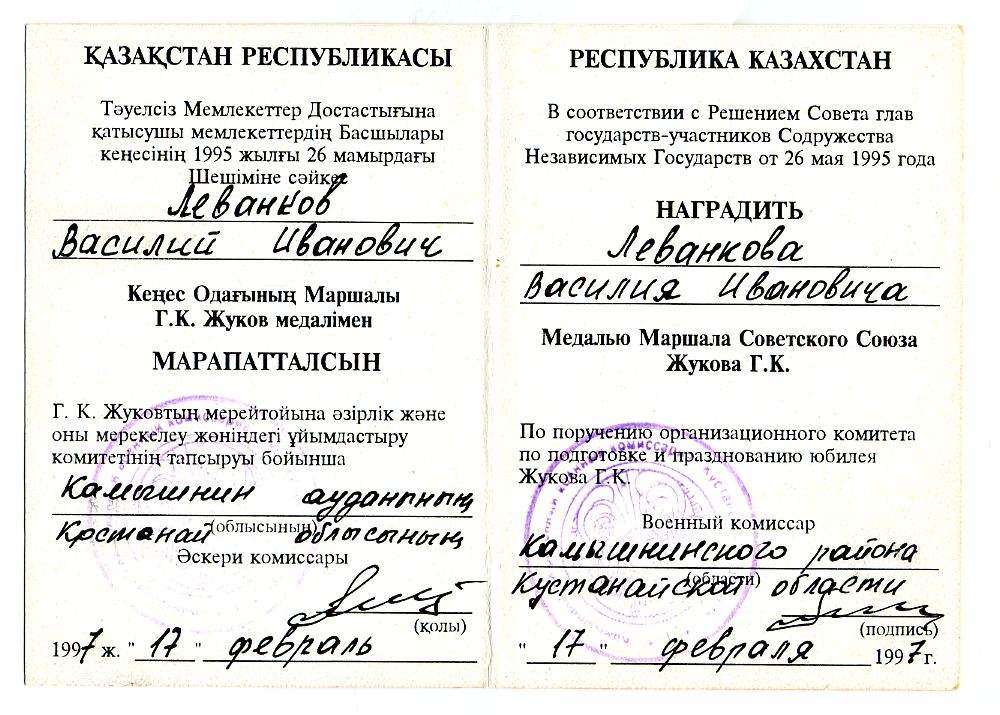 ҚАЗАҚСТАН РЕСПУБЛИКАСЫ
Тәуелсіз Мемлекеттер Достастығына
қатысушы мемлекеттердің Басшылары
кеңесінің 1995 жылғы 26 мамырдағы
Шешіміне сәйкес
Леванков
Василий Иванович
Кеңес Одағының Маршалы
Г.К. Жуков медалімен
МАРАПАТТАЛСЫН
Г. К. Жуковтың мерейтойына әзірлік және
оны мерекелеу жөніндегі ұйымдастыру
комитетінің тапсыруы бойынша
Камышнин ауданының
(облысының)
Қостанай облысының
Әскери комиссары
(қолы)
1997 ж. "17" февраль
РЕСПУБЛИКА КАЗАХСТАН
В соответствии с Решением Совета глав
государств-участников Содружества
Независимых Государств от 26 мая 1995 года
НАГРАДИТЬ
Леванкова
Василия Ивановича
Медалью Маршала Советского Союза
Жукова Г.К.
По поручению организационного комитета
по подготовке и празднованию юбилея
Жукова Г.К.
Военный комиссар
Камышнинского района
(области)
Кустанайской области
(подпись)
"17" февраля 1997 г.